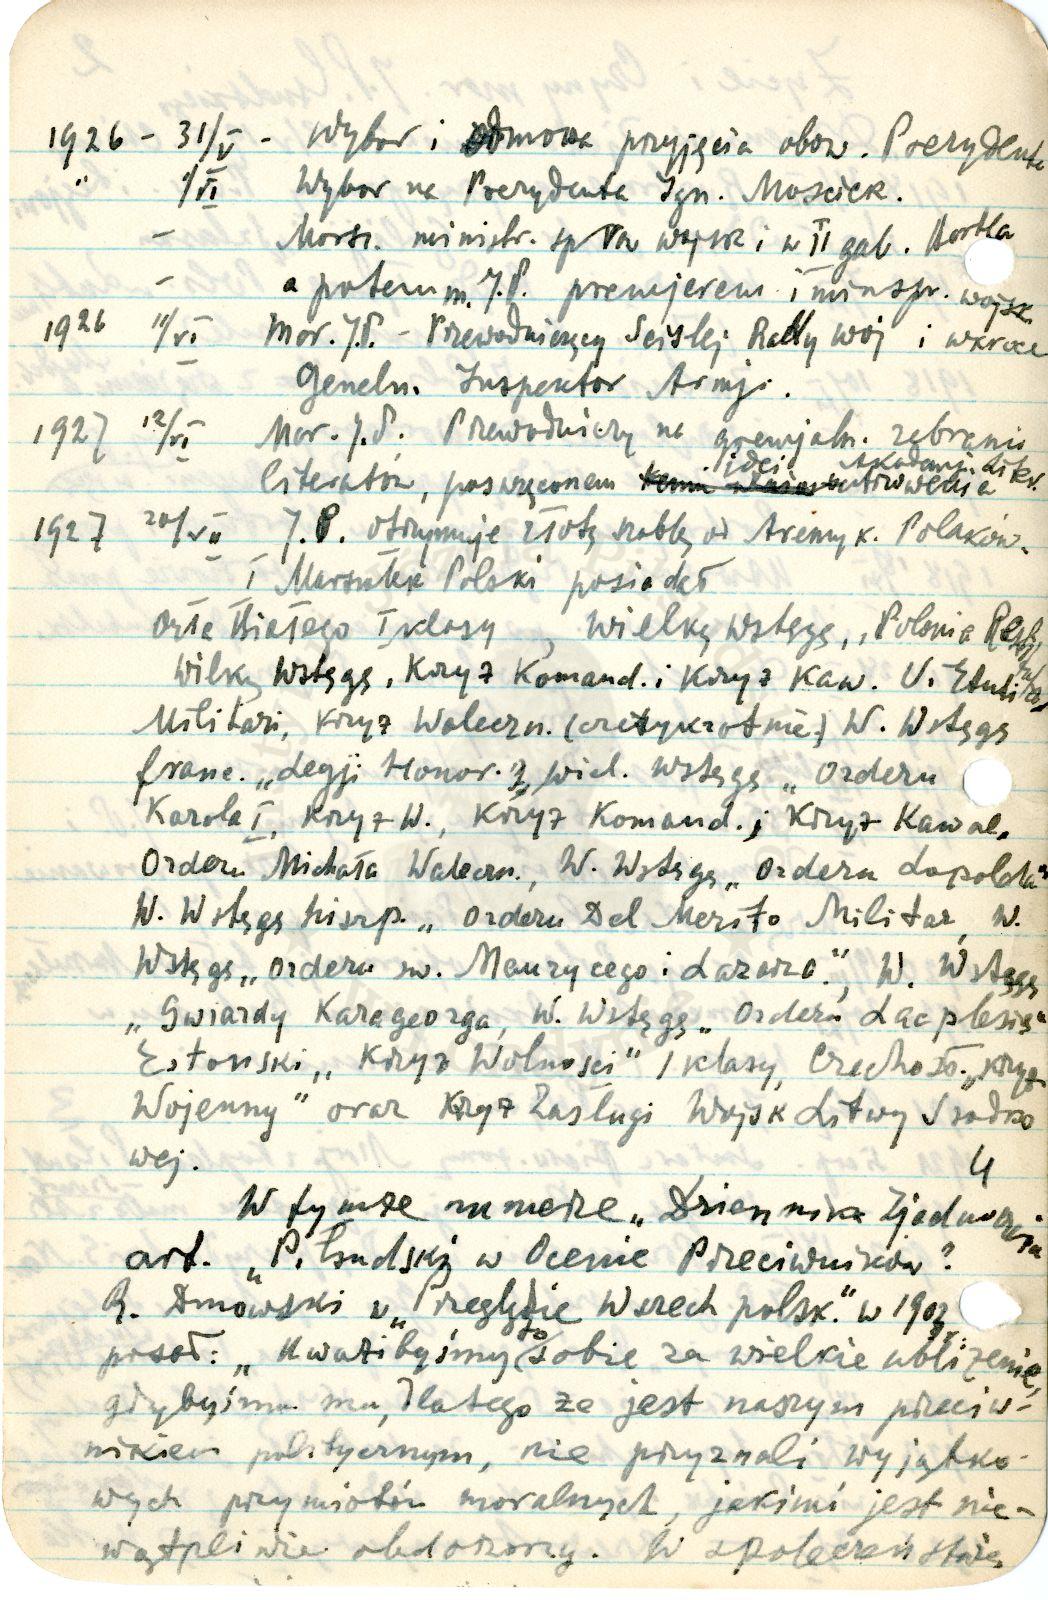 1926 - 31/V - Wybór i odmowa przyjęcia obow. Prezydenta
" 1/VI Wybór na Prezydenta Ign. Mościck.
- Marsz. ministr. spraw wojsk i w II gab. Bartla
- a potem m. J.P. premjerem i min spr. wojsk
1926 11/VI Mar. J.P. - Przewodniczący Ścisłej Rady woj i wkrótce
Generln. Inspektor Armji.
1927 12/VI Mar. J.P. Przewodniczy na gremjaln. zebraniu
literatów, poswęconem idei utworzenia Akademji Liter.
1927 20/VII J.P. otrzymuje złotą szablę od Ameryk. Polaków.
I Marszałek Polski posiadał
Orła Białego I klasy, Wielką Wstęgę, "Polonia Restit.
wilką Wstęgę, Krzyż Komand. i Krzyż Kaw. V. Etuti
Militari, Krzyż Waleczn. (czterykrotnie) W. Wstęgę
franc. "Legji Honor. wiel. wstęgę "Orderu
Karola I, Krzyż W., Krzyż Komand. i Krzyż Kawal.
Orderu Michała Waleczn., W. Wstęgę "Orderu Lopolda"
W. Wstęgę hiszp. "Orderu Del Merito Militar, W.
Wstęgę "Orderu św. Maurycego i Łazarza", W. Wstęgę
"Gwiazdy Karageorga, W. Wstęgę "Orderu Lacplesis"
Estoński "Krzyż Wolności" I klasy, Czechosł. "Krzyż
Wojenny" oraz Krzyż Zasługi Wojsk Litwy Środko
wej. 4
W tymże numerze "Dziennika Zjednoczenia
art. "Piłsudski w Ocenie Przeciwników"
R. Dmowski w "Przeglądzie Wszechpolsk." w 1903 r.
pisał: "Uważalibyśmy to sobie za wielkie ubliżenie,
gdybyśmy mu, dlatego że jest naszym przeciw-
nikiem politycznym, nie przyznali wyjątko-
wych przymiotów moralnych, jakimi jest nie-
wątpliwie obdarzony. W społeczeństwie